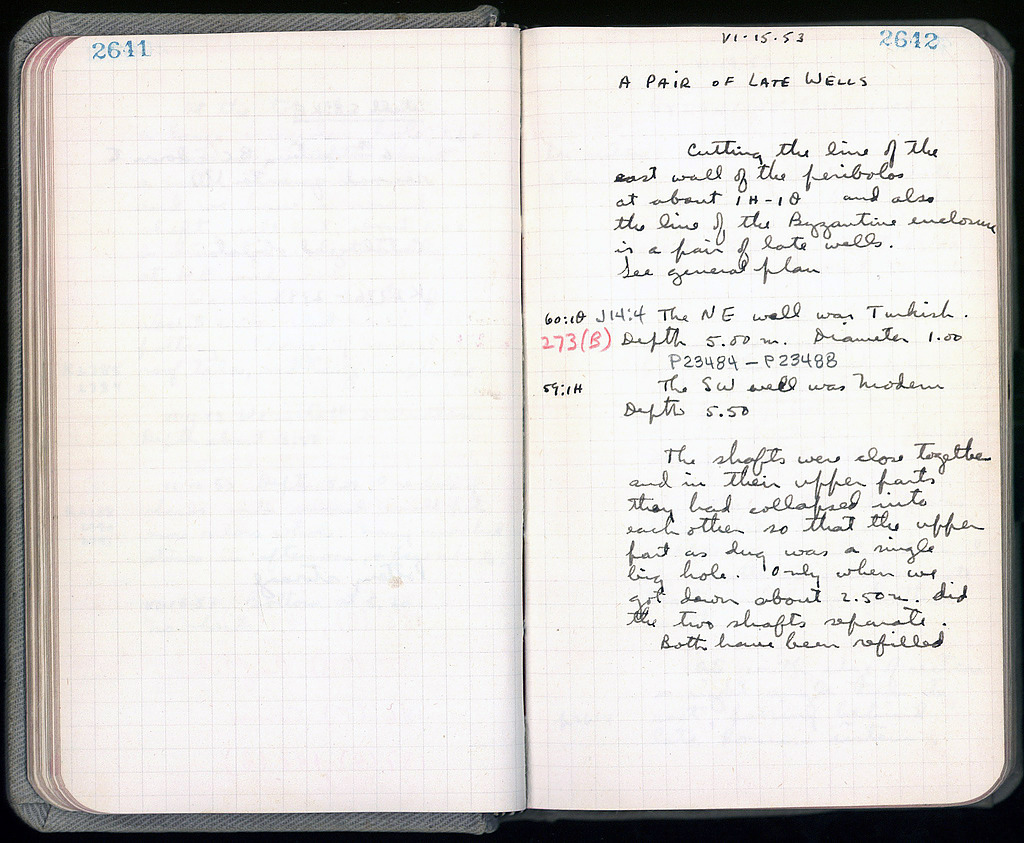 2641
VI·15·53
2642
A PAIR OF LATE WELLS
Cutting the line of the
east wall of the peribolos
at about 1H-1Θ and also
the line of the Byzantine enclosure
is a pair of late wells.
See general plan
60:1Θ J14:4 The NE well was Turkish.
273(B) Depth 5.00 m. Diameter 1.00
P23484 – P23488
59:1H The SW well was Modern
Depth 5.50
The shafts were close together
and in their upper parts
they had collapsed into
each other so that the upper
part as dug was a single
big hole. Only when we
got down about 2.50 m. did
the two shafts separate.
Both have been refilled